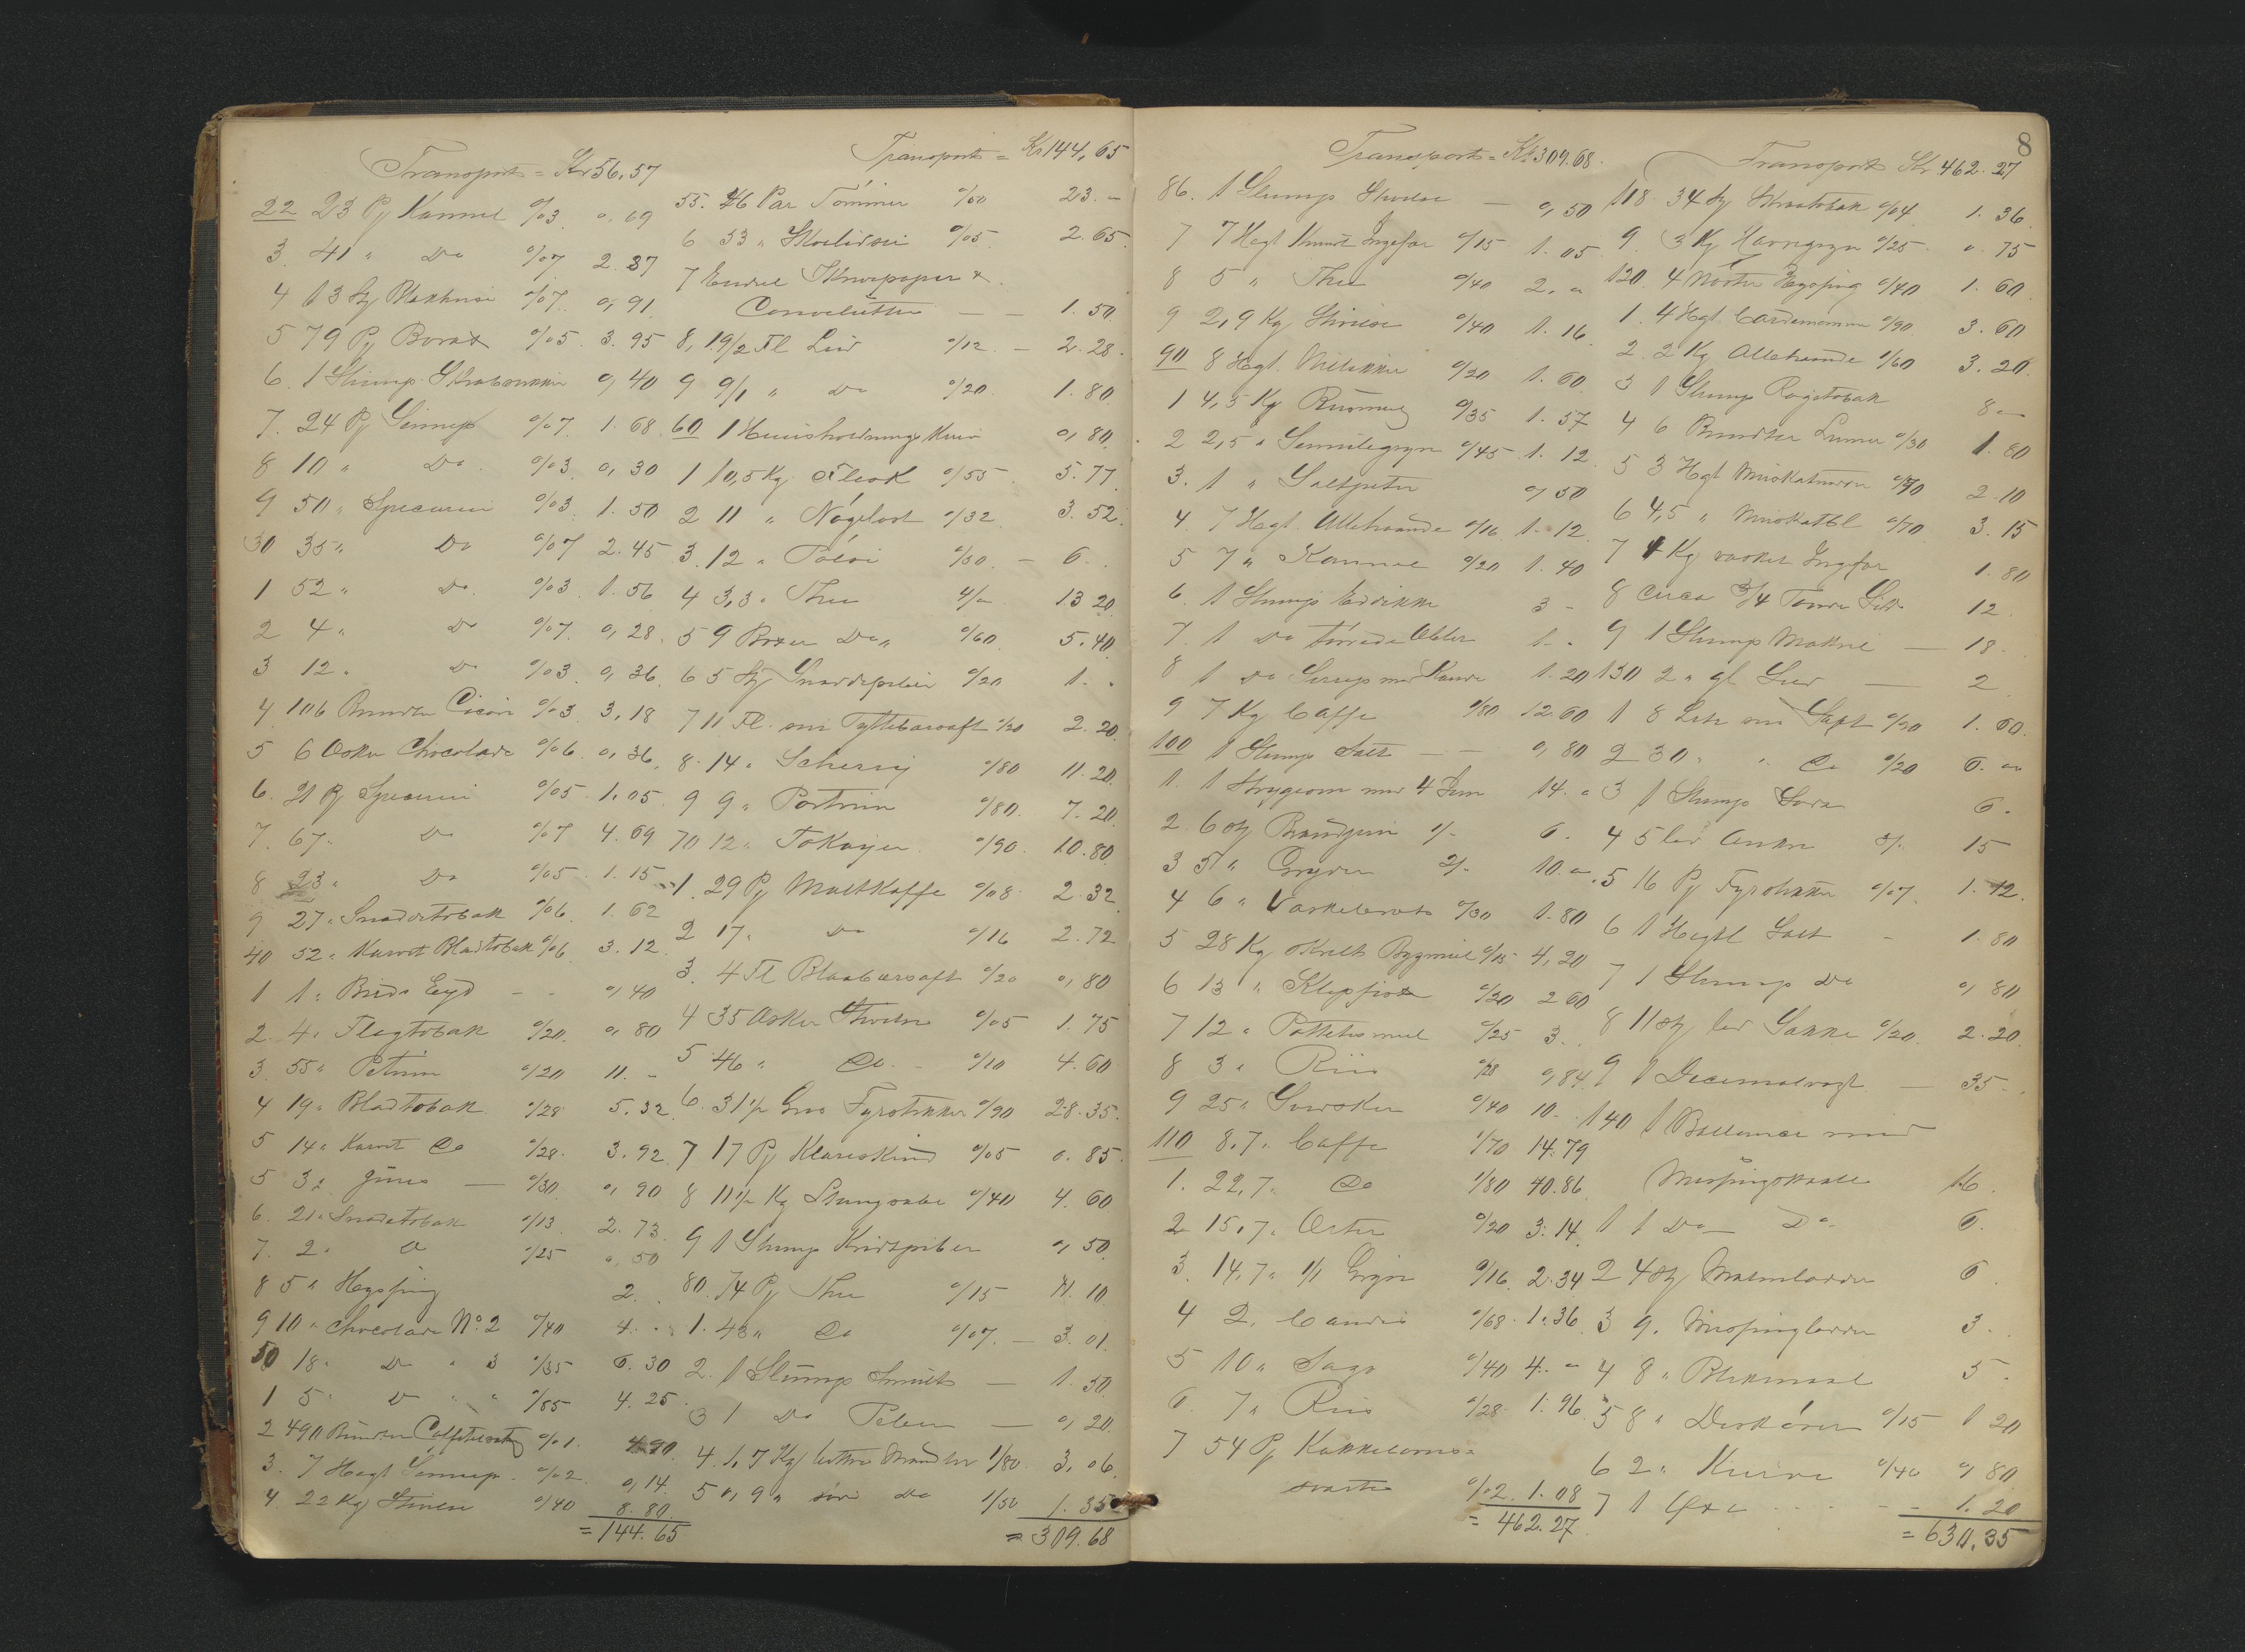 Transport = Kr 56.57
22 23 Pj Kannel %03 0.69
3. 41 " Do %07 2.87
4 13 Stj %07 0,91
5 79 Pj Borax %05 3.95
6. 1 Slump 0,40
7. 24 Pj Sennep %07 1.68
8 10 " Do %03 0,30
9 50 " %03 1.50
30 35 " Do %07 2.45
1 52 " Do %03 1.56
2 4 " Do %07 0,28
3 12 " Do %03 0,36
4 106 Bundter Cicori %03 3,18
5 6 Æsker Chocolade %06 0,36
6. 21 Pj %05 1.05
7. 67 " Do %07 4.69
8 23 " Do %05 1.15
9 27 " Snaddetobak %06 1.62
40 52 " Karvet Bladtobak %06 3.12
1 1 " - - 0,40
2. 4 " Flagtobak %20 0,80
3 55 " Petum %20 11. -
4 19 " Bladtobak %28 5.32
5 14 " Karvet Do %28 3.92
5 3 " — %30 0,90
6. 21 " Snadetobak %13 2.73
7. 2 " Do %25 0,50
8 5 " Hyssing 2.
9 10 " Chocolade No. 2 %40 4. -
50 18 " Do " 3 %35 6.30
1 5 " Do " " %85 4.25
2 490 Bundter %01 4.90
3. 7 Hegt Sennep %02 0,14
4 22 Kg Stivelse %40 8.80
= 144.65
Transport = Kr 144,65
55. 46 Par Tömmer %50 23. -
6 53 " %05 2.65
7 Endel Skrivepapir &
Convolutter — — 1.50
8, 19/2 Fl %12 — 2.28
9 9/1 " Do %20 1.80
60 1 Huusholdnings 0,80
1 10,5 Kg Flesk %55 5.77
2 11 " Nögelost %32 3.52
3. 12 " %50 — 6.
4 3,3 " The 4/- 13 20
5 9 Boxer Do " %60 5.40
6 5 Stj Snaddepiber %20 1. -
7 11 Fl. Tyttebærsaft %20 2.20
8. 14 " %80 11.20
9 9 " Portvin %80 7.20
70 12 " Tokayer %90 10.80
1. 29 Pj Maltkaffe %08 2.32
2 17 " Do %16 2.72
3. 4 Fl Blaabærsaft %20 0,80
4 35 Æsker %05 1.75
5 46 " Do %10 4.60
6. 31½ Gros Fyrstikker %90 28.35
7 17 Pj Klareskind %05 0.85
8 11½ Kg Stangsæbe %40 4.60
9 1 Slump Kridtpiber 0,50
80. 74 Pj The %15 11.10
1. 43 " Do %07 — 3.01
2. 1 Slump — 1.50
3 1 Do — 0,20
4. 1,7 Kg Mandler 1/80 3,06
5 0,9 " Do 1/50 1.35
= 309.68
Transport = Kr 309.68.
86. 1 Slump — 0,50
7 7 Hegt Knust Ingefær %15 1.05
8 5 " The %40 2. -
9 2,9 Kg Stivelse %40 1.16
90 8 Hegt. Nellikker %20 1.60
1 4,5 Kg %35 1.57
2 2,5 " Semulegryn %45 1.12
3. 1 " Saltpeter 0,50
4. 7 Hegt. Allehaande %16 1.12
5 7 " Kannel %20 1.40
6. 1 Slump Eddikke 3 -
7. 1 Do tørrede Æbler 1. -
8 1 Do Sirup med Kande 1.20
9 7 Kg Caffe 1/80 12.60
100 1 Slump Salt — — 0,80
1. 1 Strygeovn med 4 Jern 14. -
2. 6 Stj 1/- 6.
3 5 " Gryder 2/- 10 -
4 6 " Vaskebræt %30 1.80
5 28 Kg Bygmeel %15 4,20
6 13 " Klipfisk %20 2 60
7 12 " Pottetesmeel %25 3.
8 3 " Riis %28 0,84
9 25 " Svedsker %40 10.
110 8,7 " Caffe 1/70 14.79
1. 22,7 " Do 1/80 40.86
2 15,7 " Erter %20 3.14
3. 14,7 " Gryn %16 2.34
4 2 " Candis %68 1.36
5 10 " Sago %40 4. -
6. 7 " Riis %28 1.96
7 54 Pj Kakkelovns=
sværte %02 1.08
= 462.27
8
Transport Kr 462.27
118 34 Stj Skraatobak %04 1.36
9. 3 Kg Havregryn %25 0.75
120. 4 Hyssing %40 1.60
1. 4 Hgt. Cardemomme %90 3.60
2. 2 Kg Allehaande 1/60 3.20
3 1 Slump Røgetobak 8 —
4 6 Bundter %30 1.80
5 3 Hgt Muskatnødder %70 2.10
6 4,5 " Muskatbl %70 3.15
7 4 Kg vasket Ingefær 1.80
8 Circa 3/4 Tønde Sild 12.
9 1 Slump — 18.
130 2 " gl — 2
1 8 Saft %20 1.60
2 30 " " Do %20 6. -
3 1 Slump Soda 6.
4 5 3/- 15
5 16 Pj Fyrstikker %07 1.12
6 1 Hegtl Salt - 1.80
7 1 Slump Do 0,80
8 11 Stj Sække %20 2.20
9 1 Decimalvægt — 35 -
140 1 Ballance med
Messingskaale 16.
1 1 Do — Do 6.
2 4 Stj Malmlodder 6.
3 9 " Messinglodder 3.
4 8 " Blikmaal 5.
5 8 " %15 1 20
6 2 " Kurve %40 0,80
7 1 Øxe - - 1.20
= 630.35